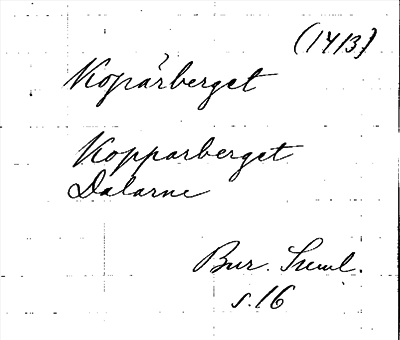 (1413)
Kopårberget
Kopparberget
Dalarne
Bur. Suml.
s. 16